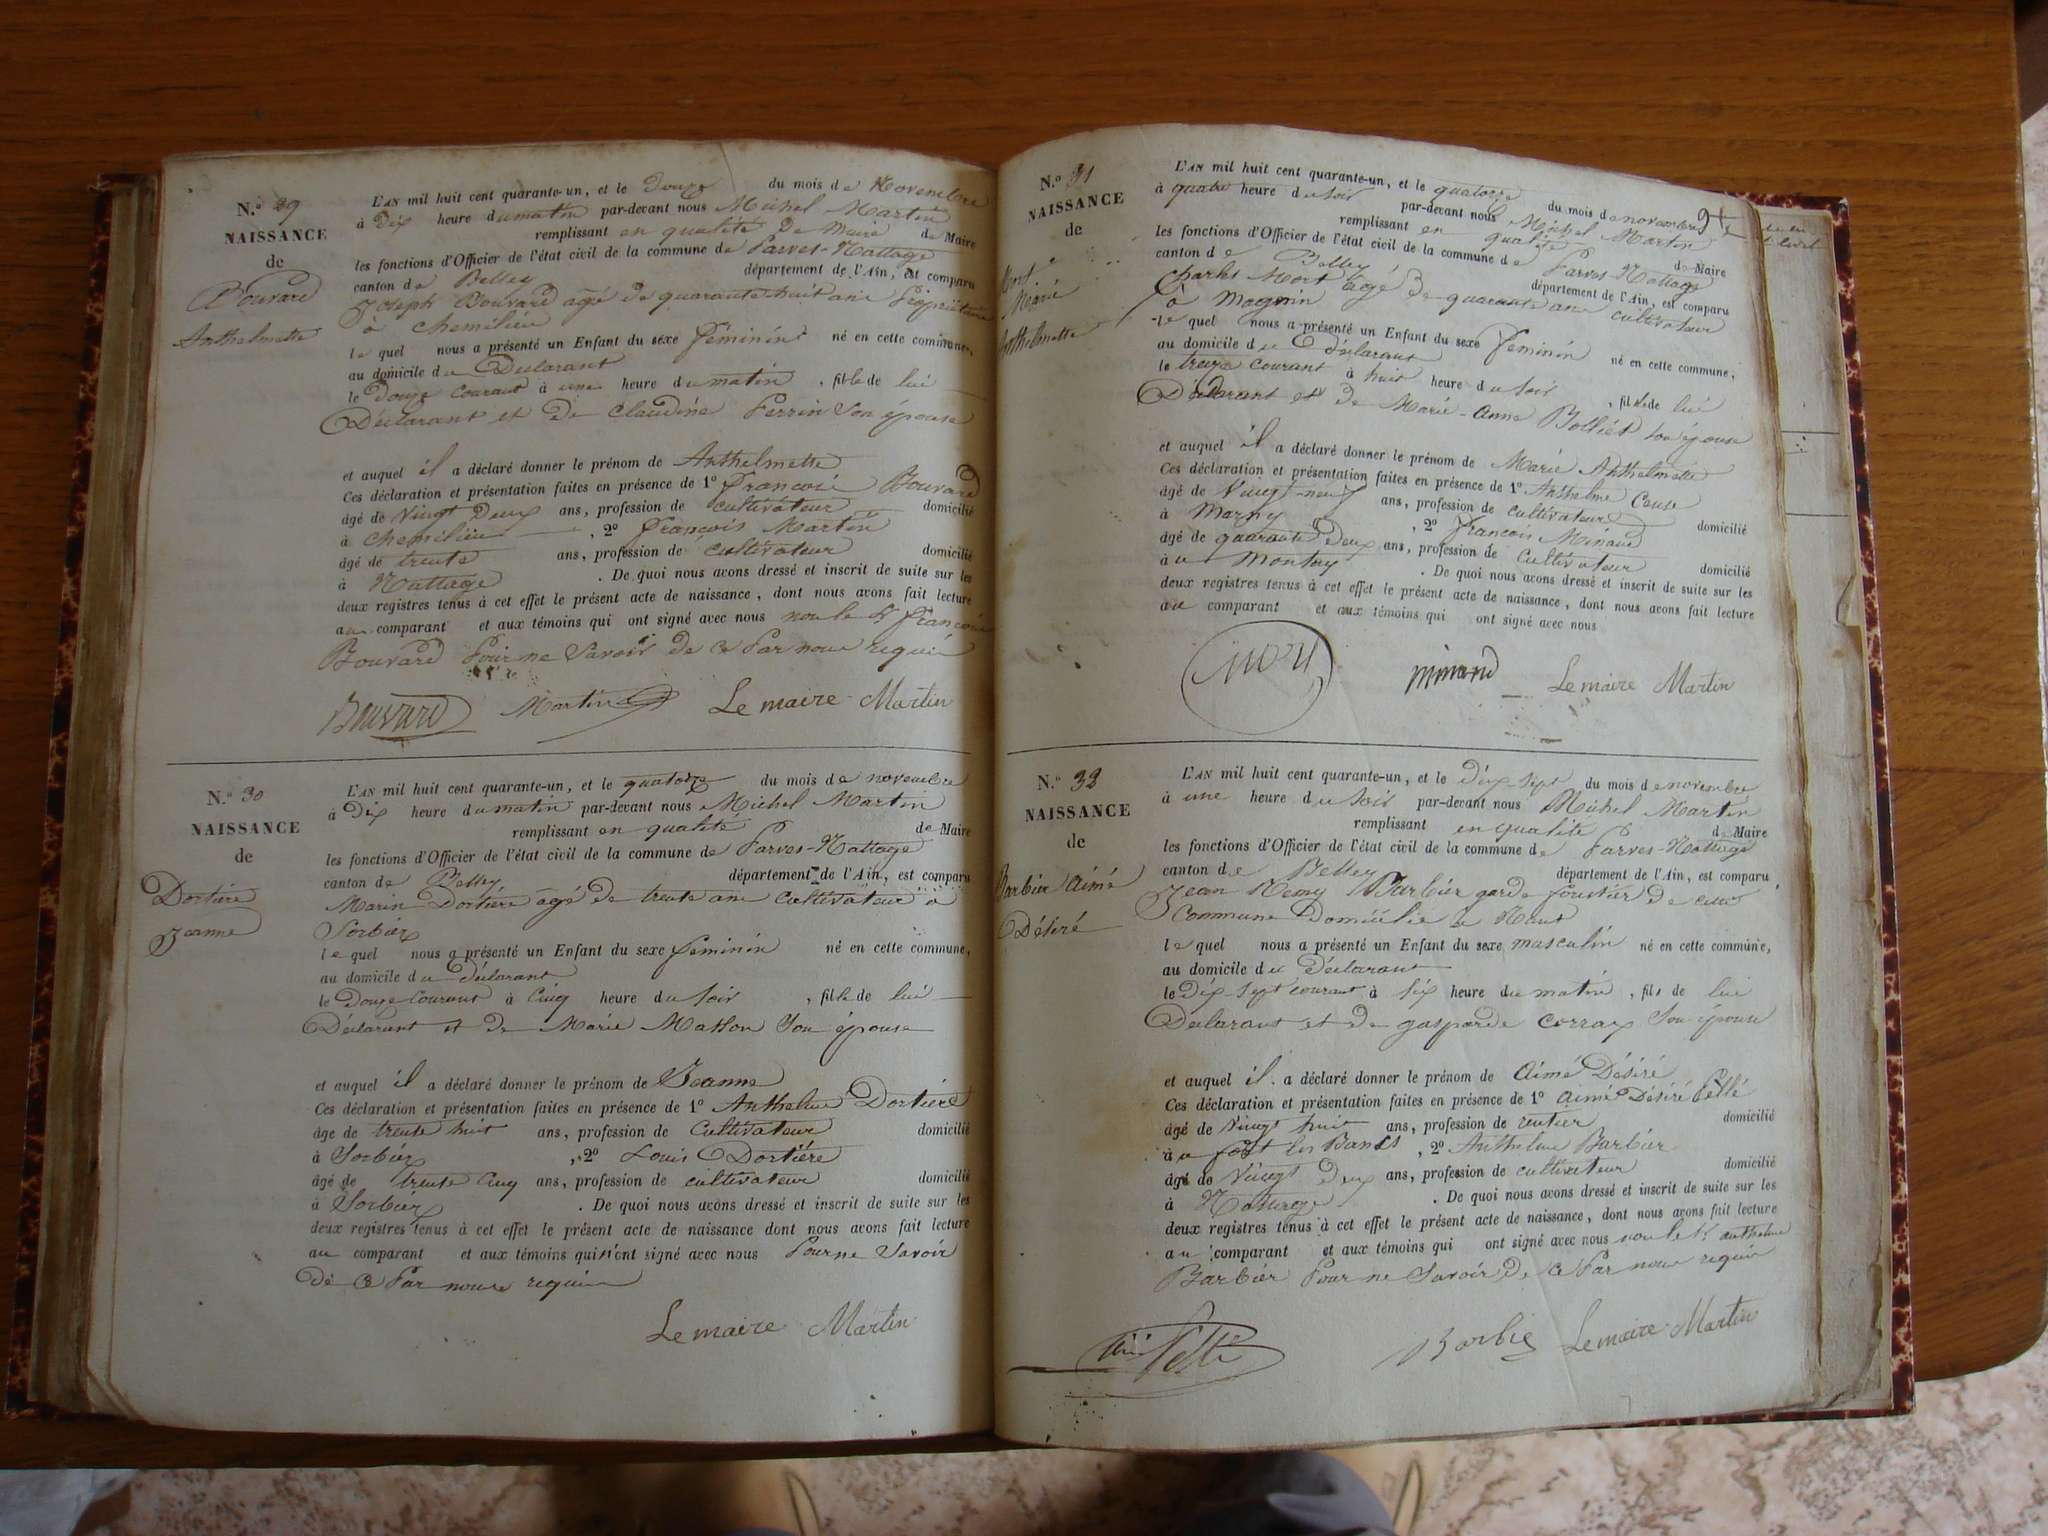 N.º 29
NAISSANCE
de
Bouvard
Anthelmette
L'AN mil huit cent quarante-un, et le Douze du mois de Novembre
à Dix heure du matin par-devant nous Michel Martin
remplissant en qualité de Maire de Maire
les fonctions d'Officier de l'état civil de la commune de Parves-Nattage
canton de Belley département de l'Ain, est comparu
Joseph Bouvard âgé de quarante huit ans Propriétaire
à Chemilieu
le quel nous a présenté un Enfant du sexe féminin né en cette commune,
au domicile du Déclarant
le Douze courant à une heure du matin, fille de lui
Déclarant et de Claudine Perrin Son épouse
et auquel il a déclaré donner le prénom de Anthelmette
Ces déclaration et présentation faites en présence de 1º François Bouvard
âgé de Vingt Deux ans, profession de cultivateur domicilié
à Chemilieu, 2º François Martin
âgé de trente ans, profession de cultivateur domicilié
à Nattage. De quoi nous avons dressé et inscrit de suite sur les
deux registres tenus à cet effet le présent acte de naissance, dont nous avons fait lecture
au comparant et aux témoins qui ont signé avec nous non le François
Bouvard Pour ne Savoir de ce Par nous requis
Bouvard Martin Le maire Martin
N.º 30
NAISSANCE
de
Dortière
Jeanne
L'AN mil huit cent quarante-un, et le quatorze du mois de novembre
à Dix heure du matin par-devant nous Michel Martin
remplissant en qualité de Maire
les fonctions d'Officier de l'état civil de la commune de Parves-Nattage
canton de Belley département de l'Ain, est comparu
Marin Dortière âgé de trente ans Cultivateur à
Sorbier
le quel nous a présenté un Enfant du sexe féminin né en cette commune,
au domicile du Déclarant
le Douze courant à Cinq heure du Soir, fille de lui
Déclarant et de Marie Masson Son épouse
et auquel il a déclaré donner le prénom de Jeanne
Ces déclaration et présentation faites en présence de 1º Anthelme Dortière
âge de trente huit ans, profession de Cultivateur domicilié
à Sorbier, 2º Louis Dortière
âgé de trente Cinq ans, profession de cultivateur domicilié
à Sorbier. De quoi nous avons dressé et inscrit de suite sur les
deux registres tenus à cet effet le présent acte de naissance dont nous avons fait lecture
au comparant et aux témoins qui n'ont signé avec nous Pour ne Savoir
de ce Par nous requis
Le maire Martin
N.º 31
NAISSANCE
de
Mort
Marie
Anthelmette
L'AN mil huit cent quarante-un, et le quatorze du mois de novembre
à quatre heure du soir par-devant nous Michel Martin
remplissant en qualité de Maire
les fonctions d'Officier de l'état civil de la commune de Parves-Nattage
canton de Belley département de l'Ain, est comparu
Charles Mort âgé de quarante ans cultivateur
à Magnin
le quel nous a présenté un Enfant du sexe féminin né en cette commune,
au domicile du Déclarant
le treize courant à huit heure du soir, fille de lui
Déclarant et de Marie-Anne Bolliet son épouse
et auquel il a déclaré donner le prénom de Marie Anthelmette
Ces déclaration et présentation faites en présence de 1º Anthelme
âgé de Vingt-neuf ans, profession de cultivateur domicilié
à, 2º François Minaud
âgé de quarante deux ans, profession de cultivateur domicilié
à. De quoi nous avons dressé et inscrit de suite sur les
deux registres tenus à cet effet le présent acte de naissance, dont nous avons fait lecture
au comparant et aux témoins qui ont signé avec nous
Mort minaud Le maire Martin
N.º 32
NAISSANCE
de
Barbier Aimé
Désiré
L'AN mil huit cent quarante-un, et le Dix-Sept du mois de novembre
à une heure du soir par-devant nous Michel Martin
remplissant en qualité de Maire
les fonctions d'Officier de l'état civil de la commune de Parves-Nattage
canton de Belley département de l'Ain, est comparu
Jean Remy Barbier garde forestier de cette
Commune Domicilié à
le quel nous a présenté un Enfant du sexe masculin né en cette commune,
au domicile du Déclarant
le Dix-Sept courant à Six heure du matin, fils de lui
Déclarant et de gasparde Corraz Son épouse
et auquel il a déclaré donner le prénom de Aimé Désiré
Ces déclaration et présentation faites en présence de 1º Aimé Désiré Pellé
âgé de Vingt huit ans, profession de rentier domicilié
au fort les Bancs, 2º Anthelme Barbier
âgé de Vingt Deux ans, profession de cultivateur domicilié
à Nattage. De quoi nous avons dressé et inscrit de suite sur les
deux registres tenus à cet effet le présent acte de naissance, dont nous avons fait lecture
au comparant et aux témoins qui ont signé avec nous non le anthelme
Barbier Pour ne Savoir de ce Par nous requis
Barbie Le maire Martin